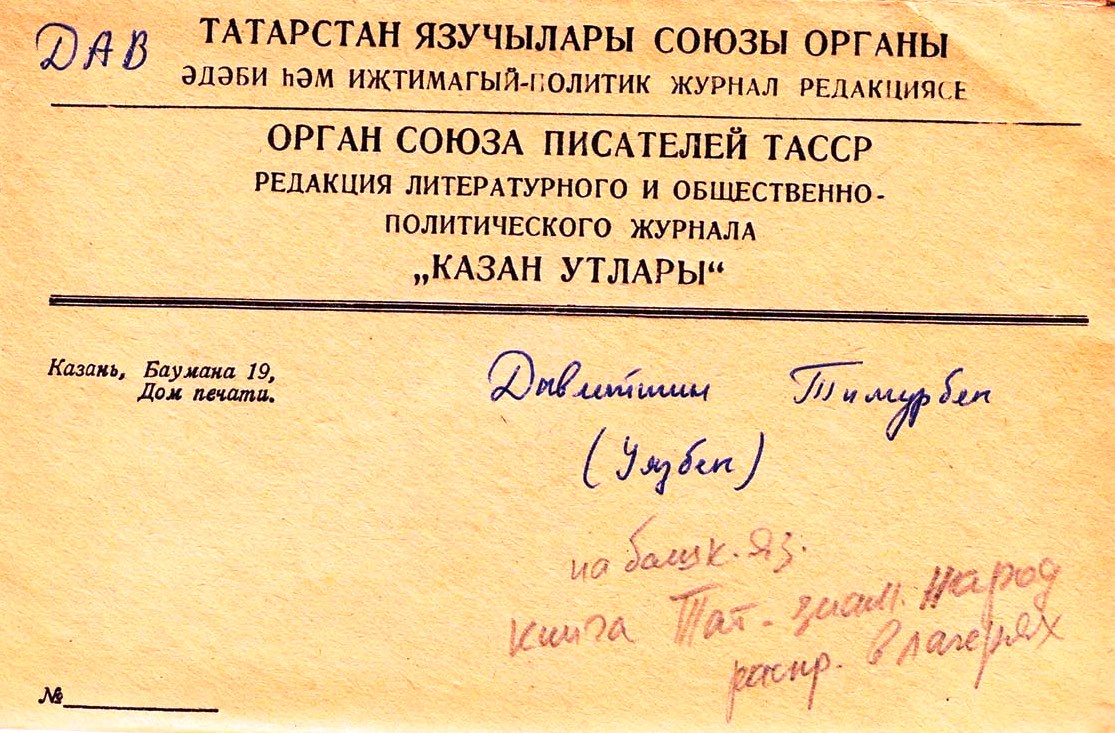 ДАВ
ТАТАРСТАН ЯЗУЧЫЛАРЫ СОЮЗЫ ОРГАНЫ
ӘДӘБИ ҺӘМ ИҖТИМАГЫЙ-ПОЛИТИК ЖУРНАЛ РЕДАКЦИЯСЕ
ОРГАН СОЮЗА ПИСАТЕЛЕЙ ТАССР
РЕДАКЦИЯ ЛИТЕРАТУРНОГО И ОБЩЕСТВЕННО-
ПОЛИТИЧЕСКОГО ЖУРНАЛА
„КАЗАН УТЛАРЫ“
Казань, Баумана 19,
Дом печати.
Давлетшин Тимурбек
(Уязбек)
на башк. яз.
книга Тат. - знам. народ
распр. в лагерях
№